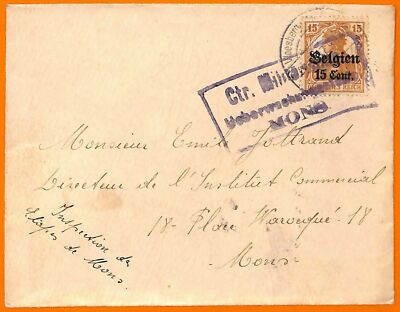 15 15
Belgien
15 Cent.
Ctr. Militär
Ueberwachung
MONS
Monsieur Emile Jottrand
Directeur de l'Institut Commercial
18 - Place Warocqué - 18
Mons
Inspection des
Etapes de Mons.